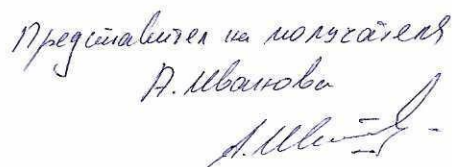 Представител на получателя
А. Иванова
А. Ив